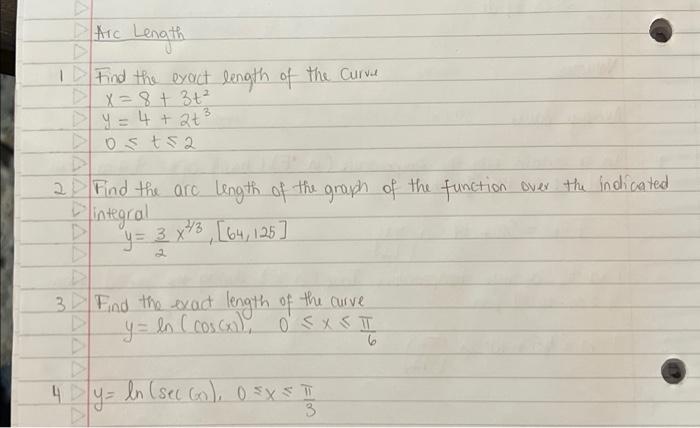 Arc Length
1 Find the exact length of the curve
x = 8 + 3t²
y = 4 + 2t³
0 ≤ t ≤ 2
2 Find the arc length of the graph of the function over the indicated
integral
y = 3/2 x^2/3, [64, 125]
3 Find the exact length of the curve
y = ln(cos(x)), 0 ≤ x ≤ π/6
4 y = ln(sec(x)), 0 ≤ x ≤ π/3